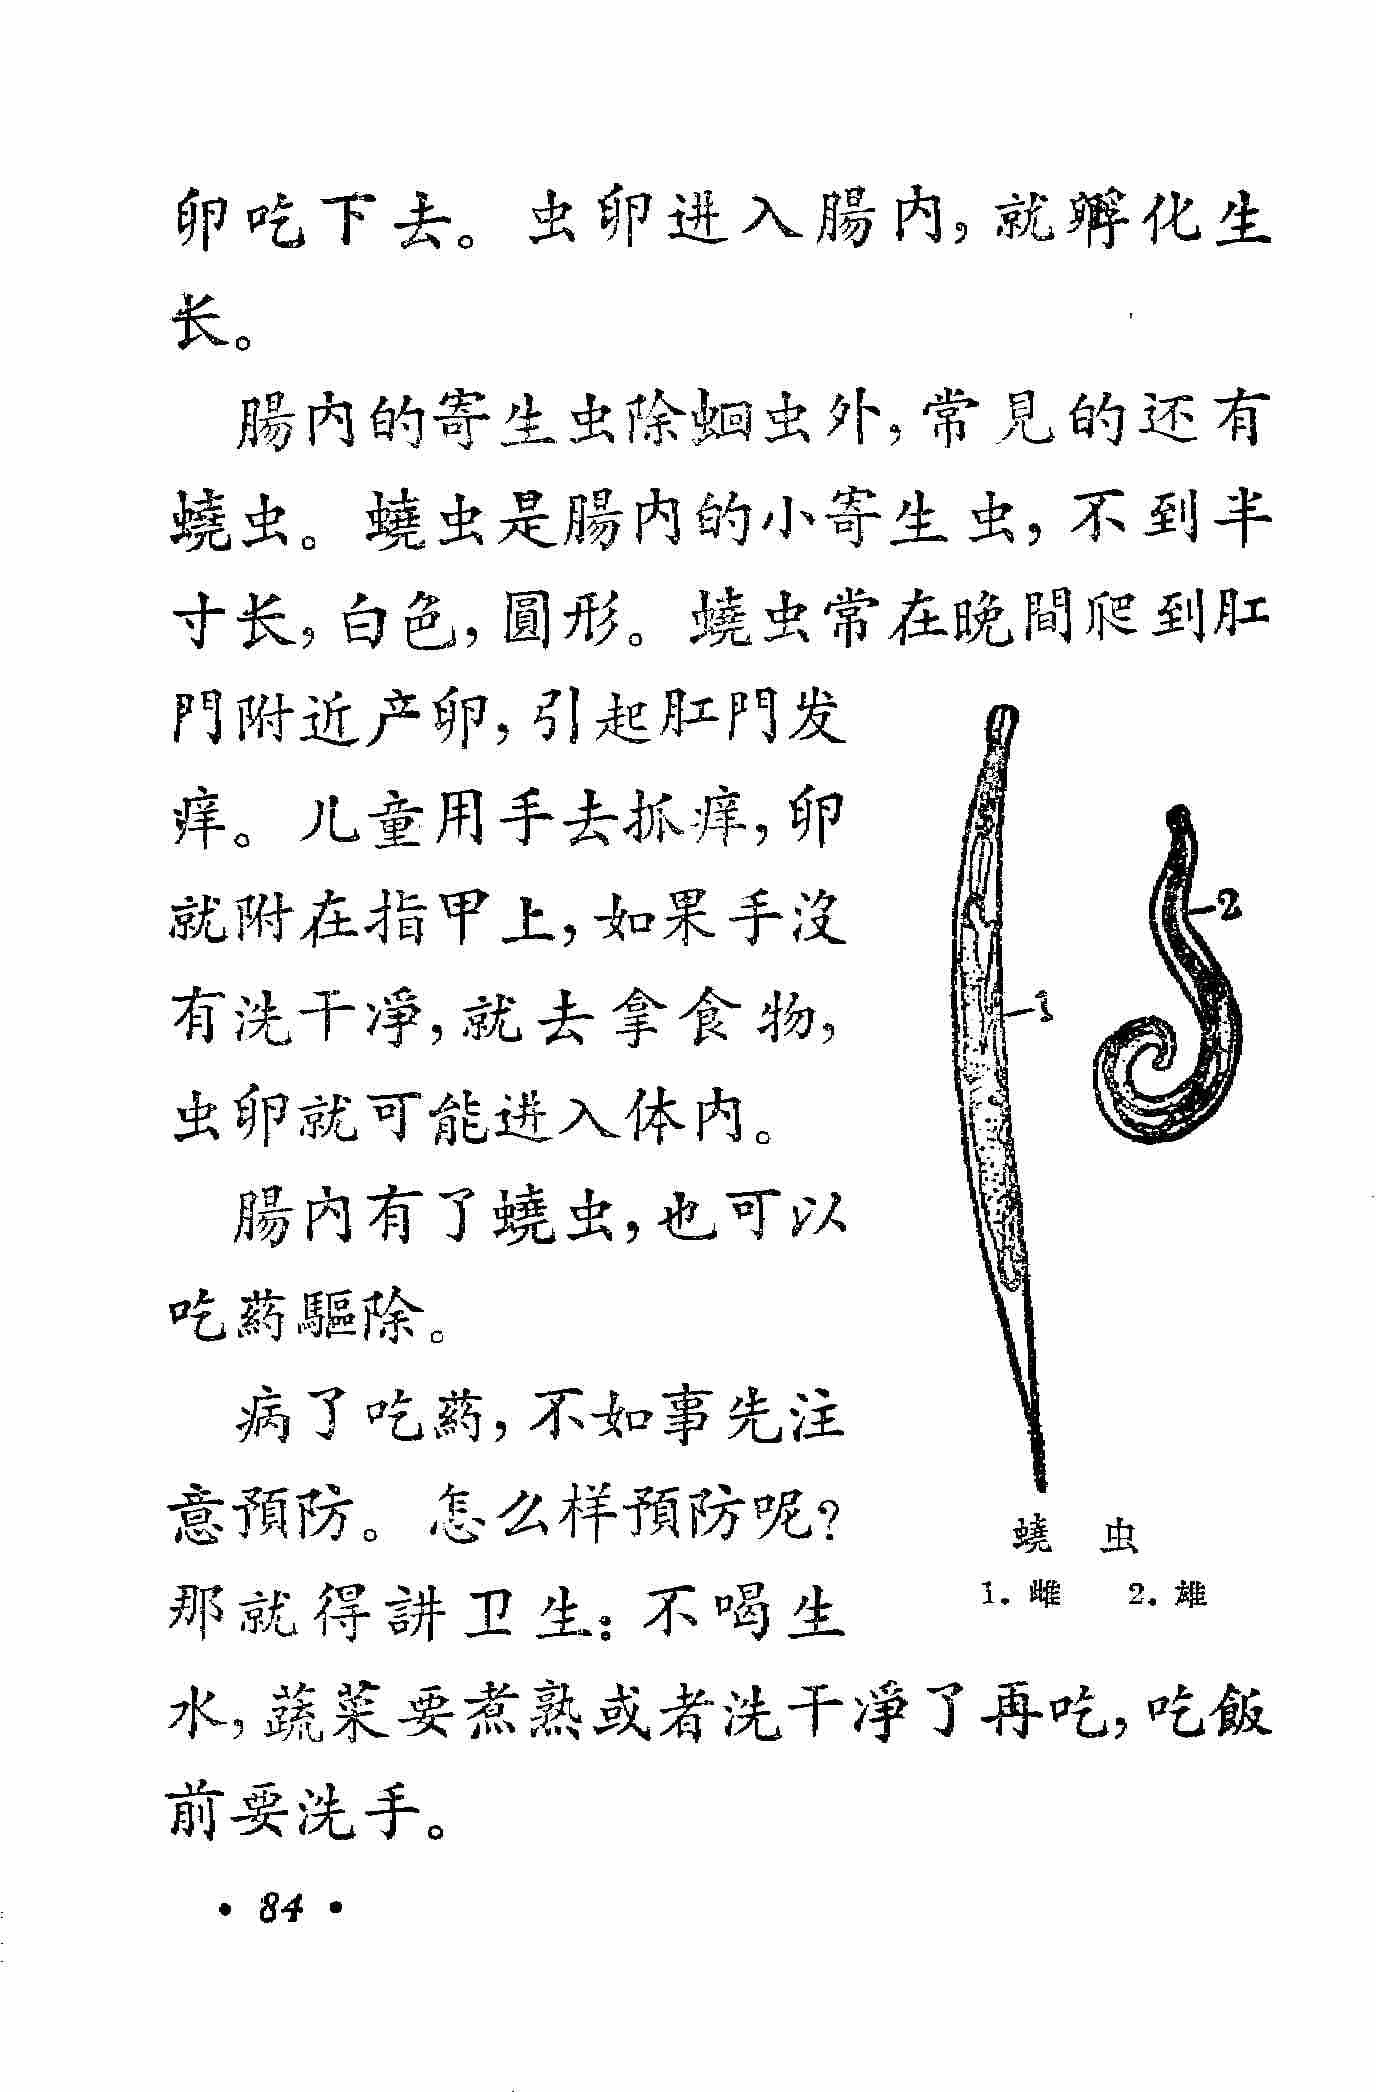 卵吃下去。虫卵进入腸内,就孵化生
长。
腸内的寄生虫除蛔虫外,常見的还有
蟯虫。蟯虫是腸内的小寄生虫,不到半
寸长,白色,圓形。蟯虫常在晚間爬到肛
門附近产卵,引起肛門发
痒。儿童用手去抓痒,卵
就附在指甲上,如果手沒
有洗干凈,就去拿食物,
虫卵就可能进入体内。
腸内有了蟯虫,也可以
吃葯驅除。
病了吃葯,不如事先注
意預防。怎么样預防呢?
那就得讲卫生:不喝生
水,蔬菜要煮熟或者洗干凈了再吃,吃飯
前要洗手。
1
2
蟯虫
1. 雌 2. 雄
• 84 •